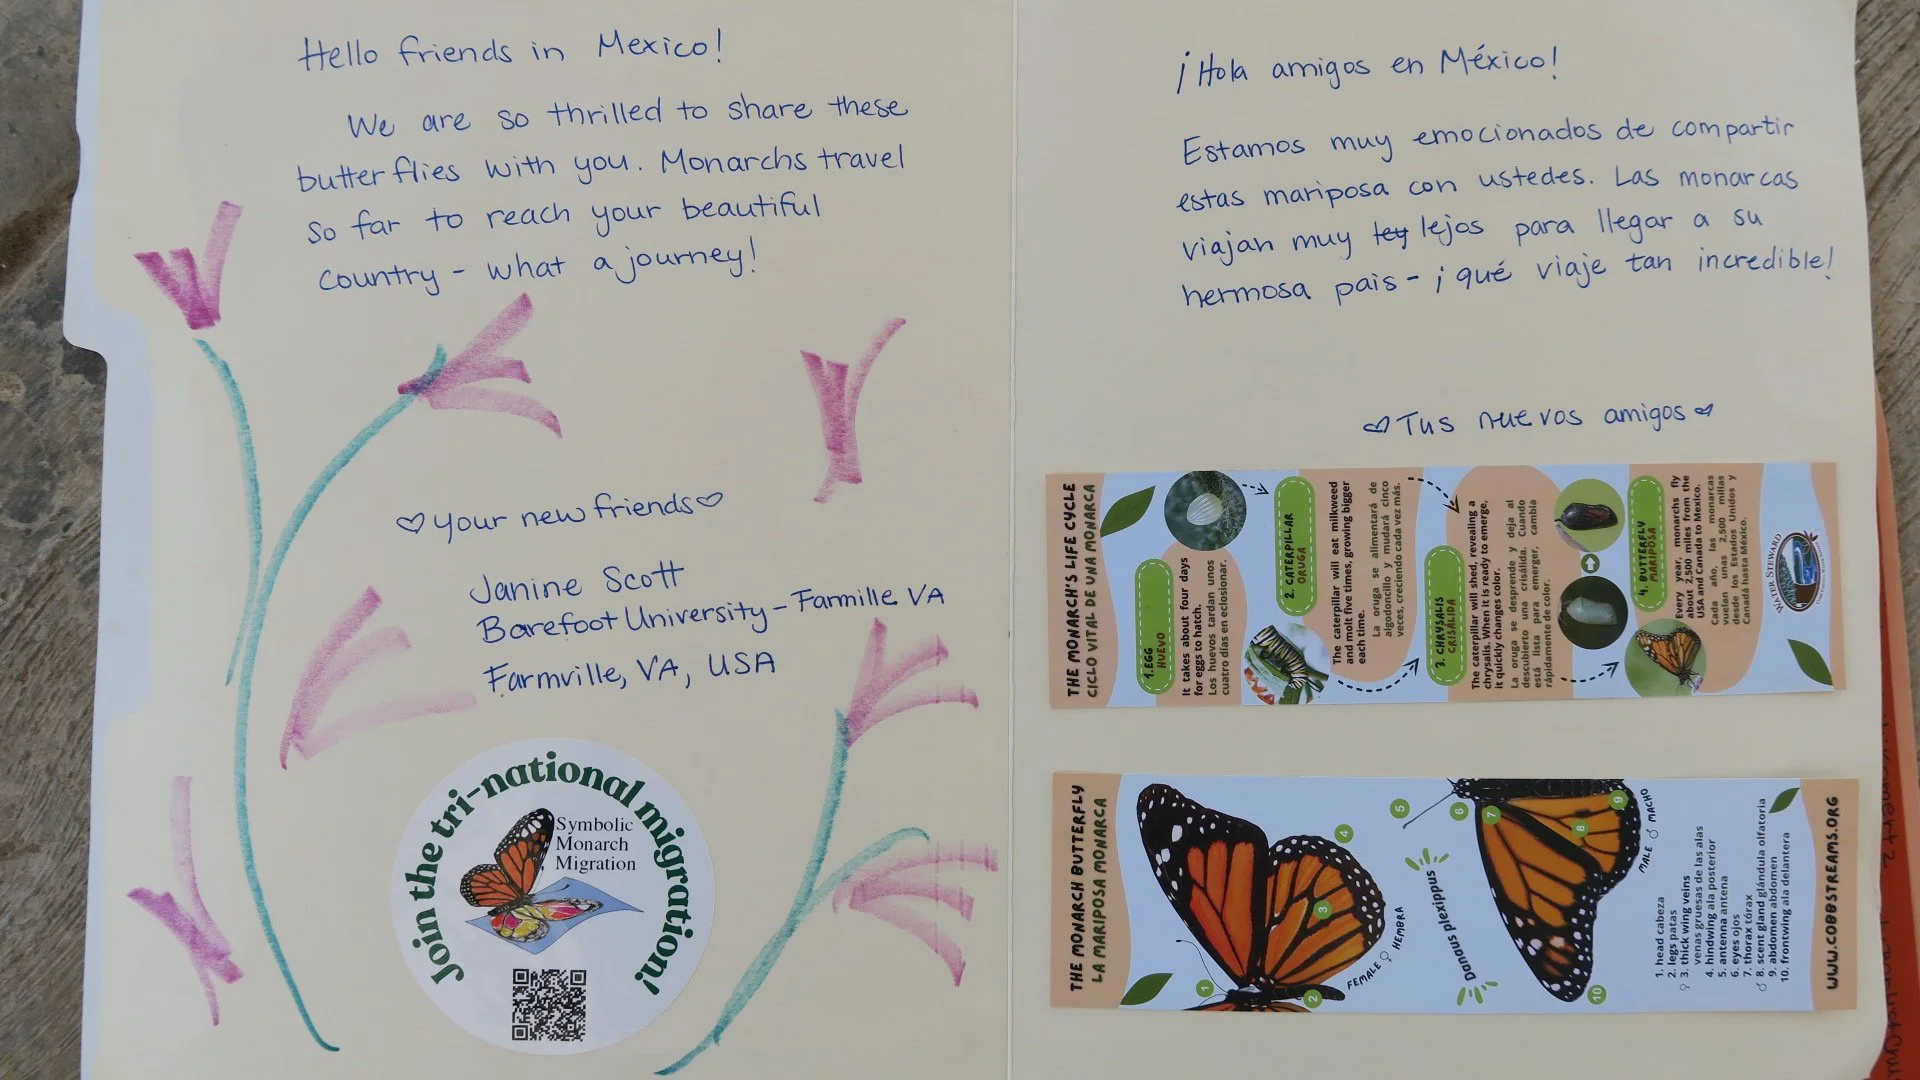 Hello friends in Mexico!
We are so thrilled to share these
butterflies with you. Monarchs travel
so far to reach your beautiful
country - what a journey!
♡ your new friends ♡
Janine Scott
Barefoot University - Farmille VA
Farmville, VA, USA
Join the tri-national migration!
Symbolic
Monarch
Migration
¡Hola amigos en México!
Estamos muy emocionados de compartir
estas mariposa con ustedes. Las monarcas
viajan muy ley lejos para llegar a su
hermosa pais - ¡qué viaje tan incredible!
♡ Tus nuevos amigos ♡
THE MONARCH'S LIFE CYCLE
CICLO VITAL DE UNA MONARCA
1. EGG
HUEVO
It takes about four days
for eggs to hatch.
Los huevos tardan unos
cuatro días en eclosionar.
2. CATERPILLAR
ORUGA
The caterpillar will eat milkweed
and molt five times, growing bigger
each time.
La oruga se alimentará de
algodoncillo y mudará cinco
veces, creciendo cada vez más.
3. CHRYSALIS
CRISÁLIDA
The caterpillar will shed, revealing a
chrysalis. When it is ready to emerge,
it quickly changes color.
La oruga se desprende y deja al
descubierto una crisálida. Cuando
está lista para emerger, cambia
rápidamente de color.
4. BUTTERFLY
MARIPOSA
Every year, monarchs fly
about 2,500 miles from the
USA and Canada to Mexico.
Cada año, las monarcas
vuelan unas 2,500 millas
desde los Estados Unidos y
Canadá hasta México.
WATER STEWARD
THE MONARCH BUTTERFLY
LA MARIPOSA MONARCA
1
2
3
4
FEMALE ♀ HEMBRA
Danaus plexippus
5
6
7
8
9
10
MALE ♂ MACHO
1. head cabeza
2. legs patas
♀ 3. thick wing veins
venas gruesas de las alas
4. hindwing ala posterior
5. antenna antena
6. eyes ojos
7. thorax tórax
♂ 8. scent gland glándula olfatoria
9. abdomen abdomen
10. frontwing ala delantera
WWW.COBBSTREAMS.ORG